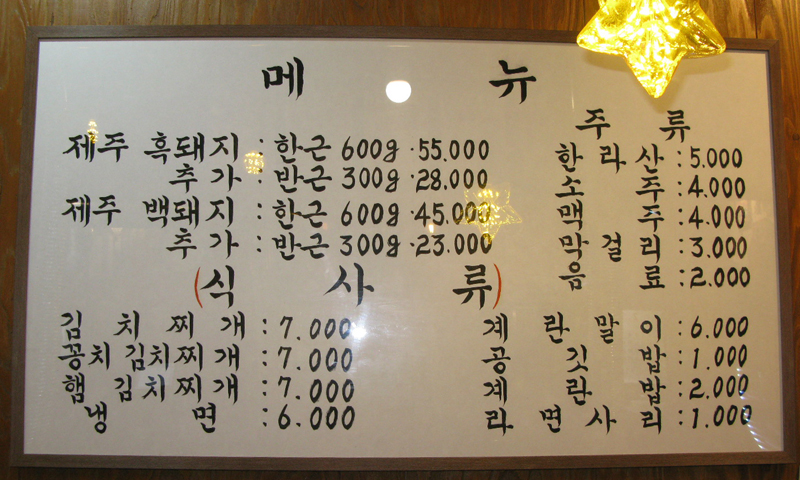 메 뉴
제주 흑돼지 : 한근 600g ·55.000
추 가 : 반근 300g ·28.000
제주 백돼지 : 한근 600g ·45.000
추 가 : 반근 300g ·23.000
주 류
한 라 산 : 5.000
소 주 : 4.000
맥 주 : 4.000
막 걸 리 : 3.000
음 료 : 2.000
(식 사 류)
김 치 찌 개 : 7.000
꽁치 김치찌개 : 7.000
햄 김치찌개 : 7.000
냉 면 : 6.000
계 란 말 이 : 6.000
공 깃 밥 : 1.000
계 란 밥 : 2.000
라 면 사 리 : 1.000